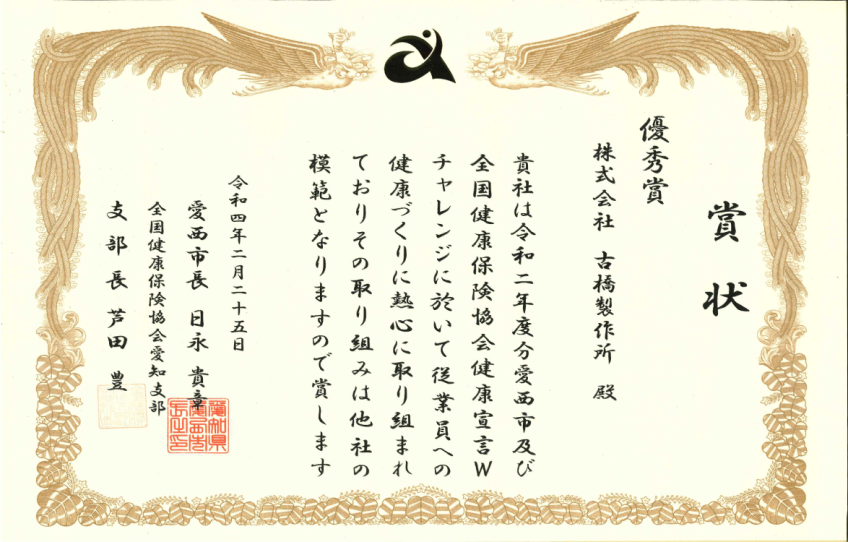 賞状
優秀賞
株式会社 古橋製作所 殿
貴社は令和二年度分愛西市及び
全国健康保険協会健康宣言W
チャレンジに於いて従業員への
健康づくりに熱心に取り組まれ
ておりその取り組みは他社の
模範となりますので賞します
令和四年二月二十五日
愛西市長 日永貴章
全国健康保険協会愛知支部
支部長 芦田豊